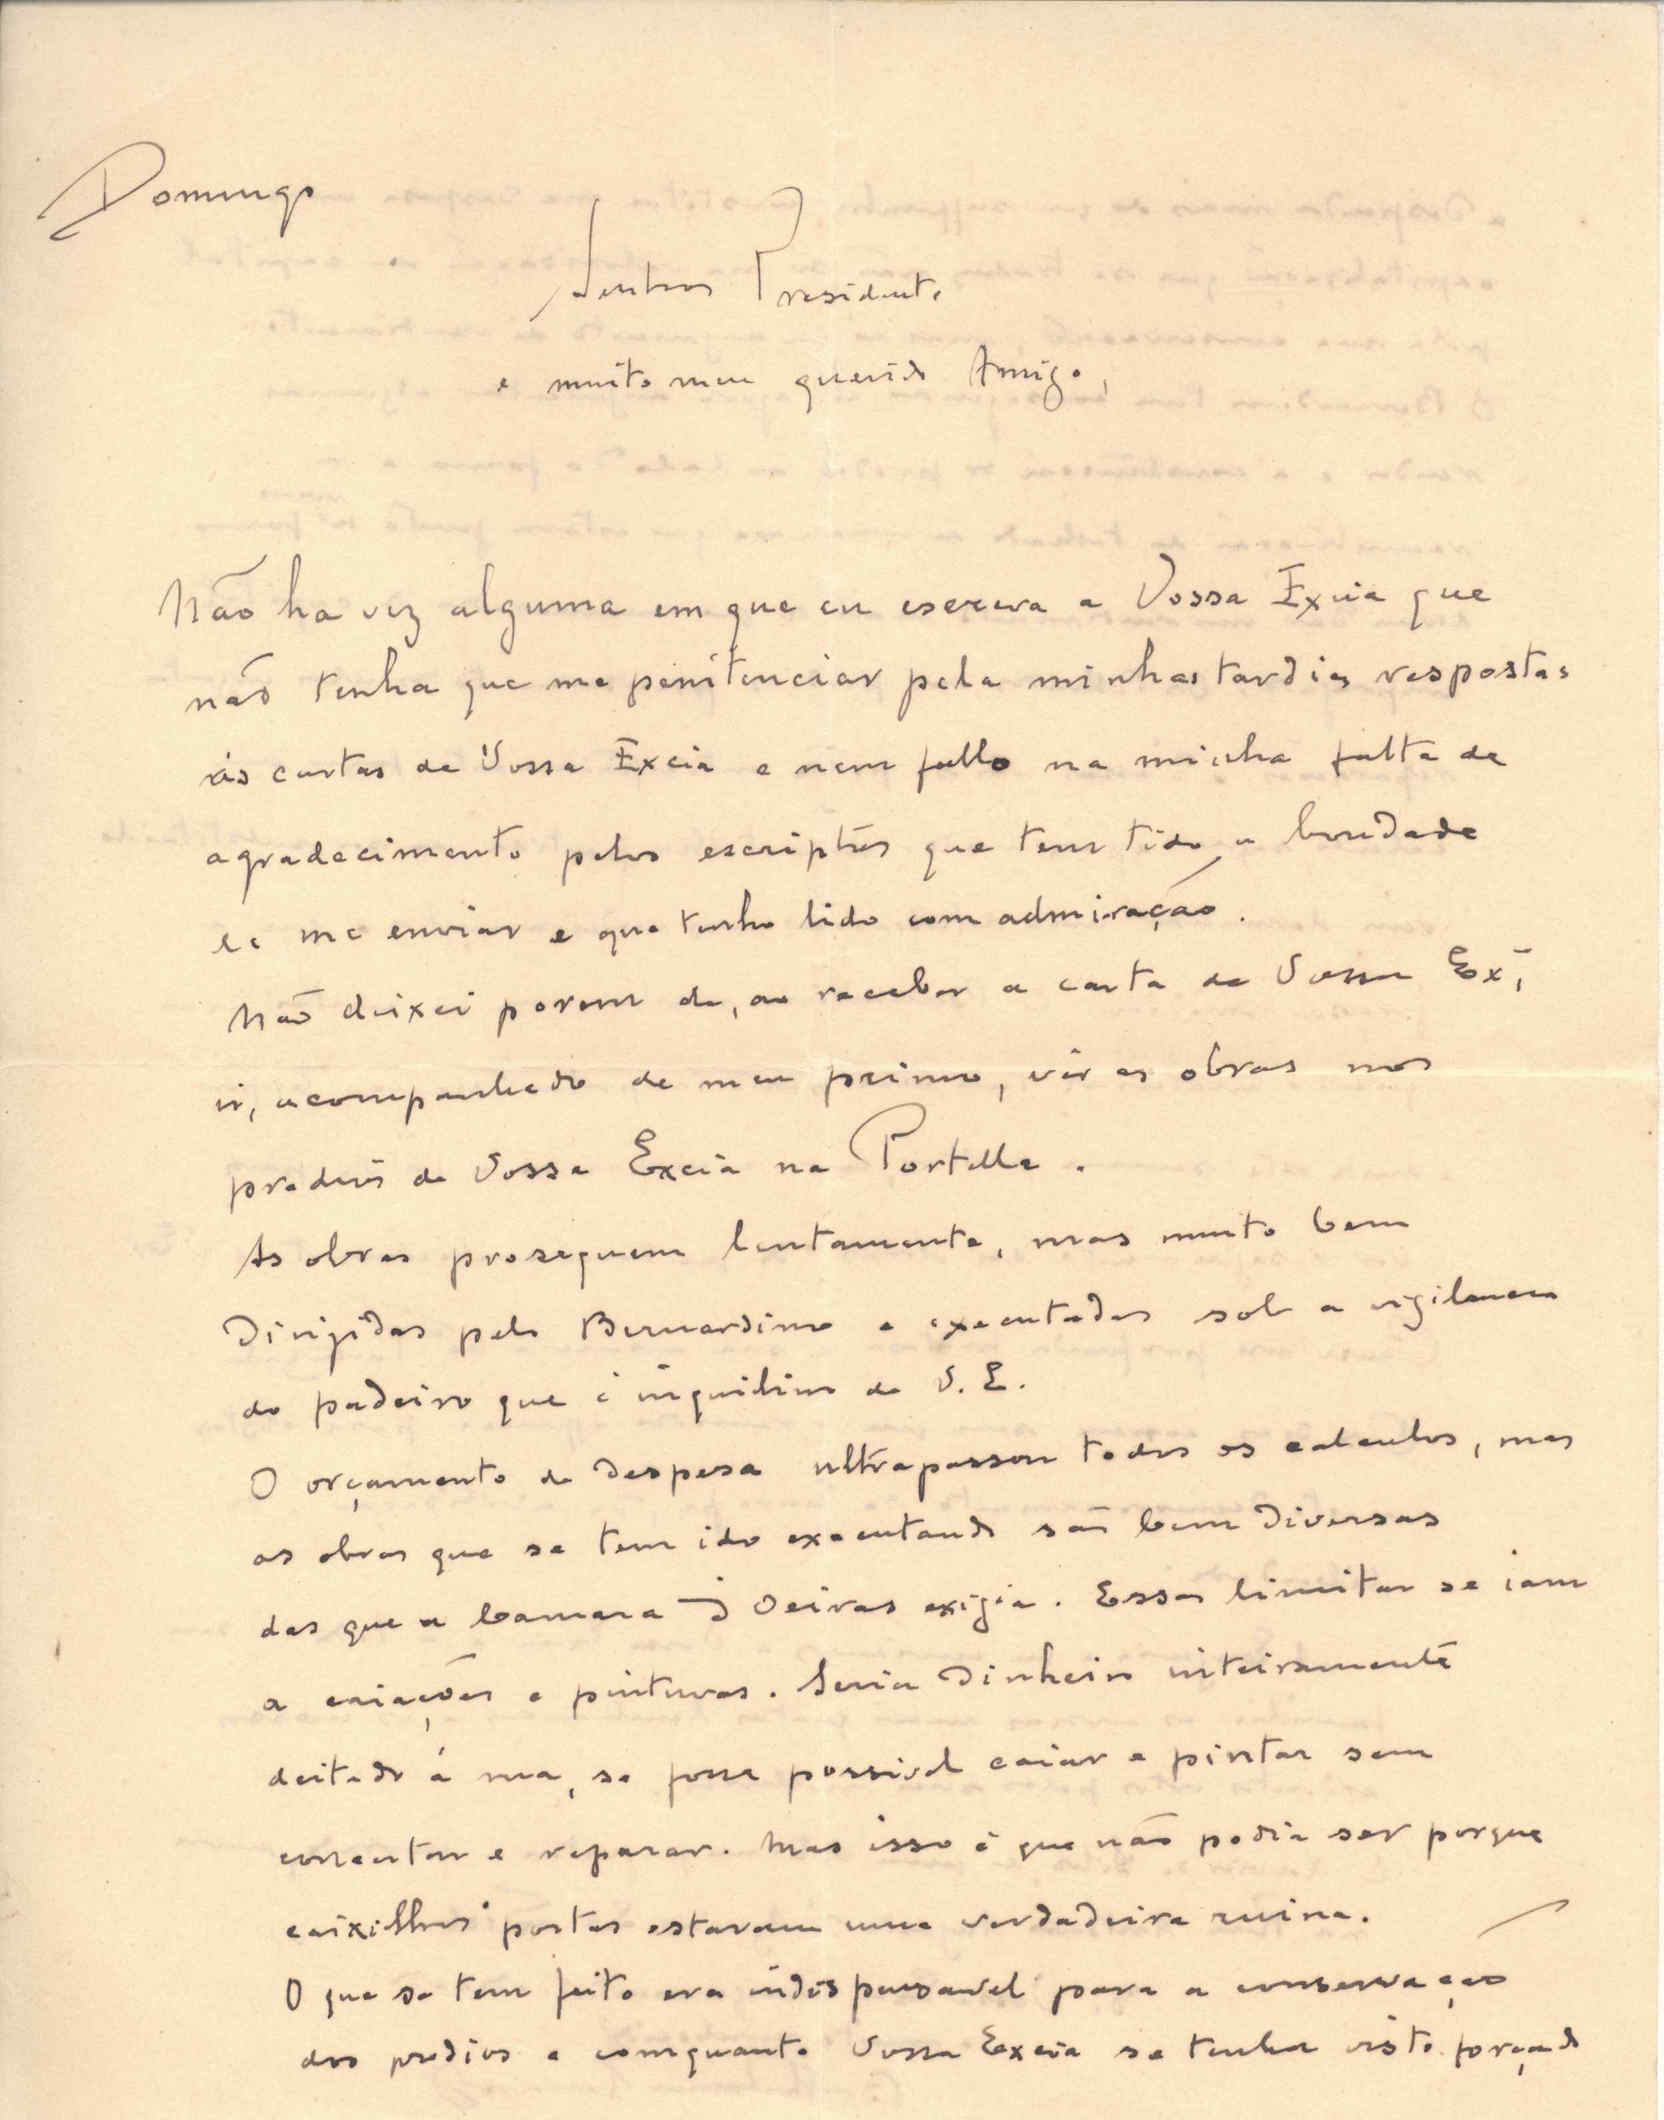 Domingo
Senhor Presidente
e muito meu querido Amigo,
Não ha vez alguma em que eu escreva a Vossa Excia que
não tenha que me penitenciar pela minhas tardias respostas
ás cartas de Vossa Excia e nem fallo na minha falta de
agradecimento pelos escriptos que tem tido a bondade
de me enviar e que tenho lido com admiração.
Não deixei porem de, ao receber a carta de Vossa Exª,
ir, acompanhado de meu primo, vêr as obras nos
predios de Vossa Excia na Portella.
As obras proseguem lentamente, mas muito bem
dirigidas pelo Bernardino e executadas sob a vigilancia
do padeiro que é inquilino de V. E.
O orçamento da despesa ultrapassou todos os calculos, mas
as obras que se tem ido executando são bem diversas
das que a Camara d'Oeiras exigia. Essas limitar se iam
a caiações e pinturas. Seria dinheiro inteiramente
deitado á rua, se fosse possivel caiar e pintar sem
concertar e reparar. Mas isso é que não podia ser porque
caixilhos portas estavam uma verdadeira ruina.
O que se tem feito era indispensavel para a conservação
dos predios e comquanto Vossa Excia se tenha visto forçado